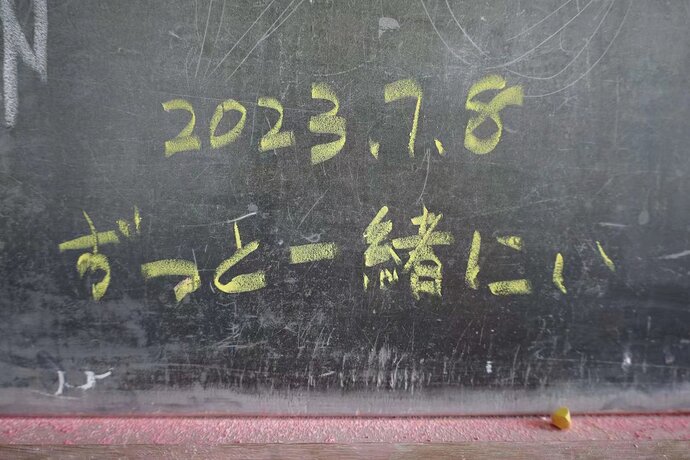 N
2023.7.8
ずっと一緒にい